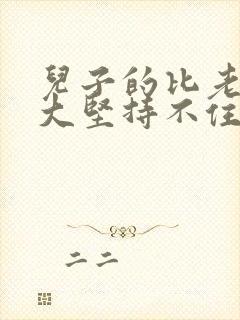 兒子的比老
大堅持不住
二二